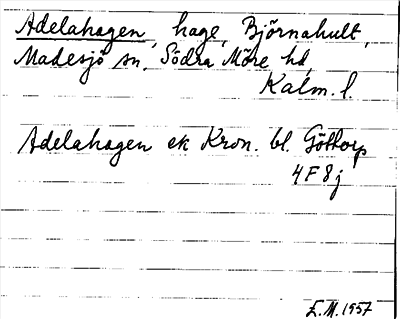 Adelahagen, hage, Björnahult,
Madesjö sn, Södra Möre hd,
Kalm. l.
Adelahagen ek Kron. bl. Göttorp
4F8j
E.M. 1957